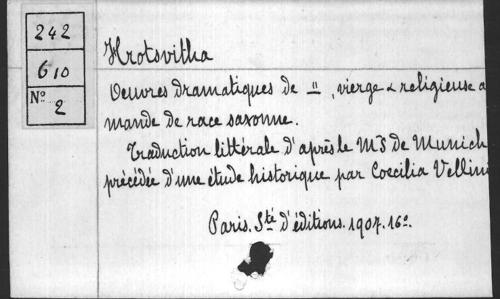 242
610
No 2
Hrotsvitha
Oeuvres dramatiques de ", vierge & religieuse a
mande de race saxonne.
Traduction littérale d'après le MS de Munich
précédée d'une étude historique par Coecilia Vellini
Paris. Sté d'éditions. 1907. 16o.